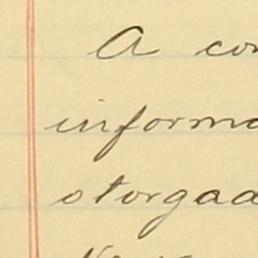 A con
informa
otorgad